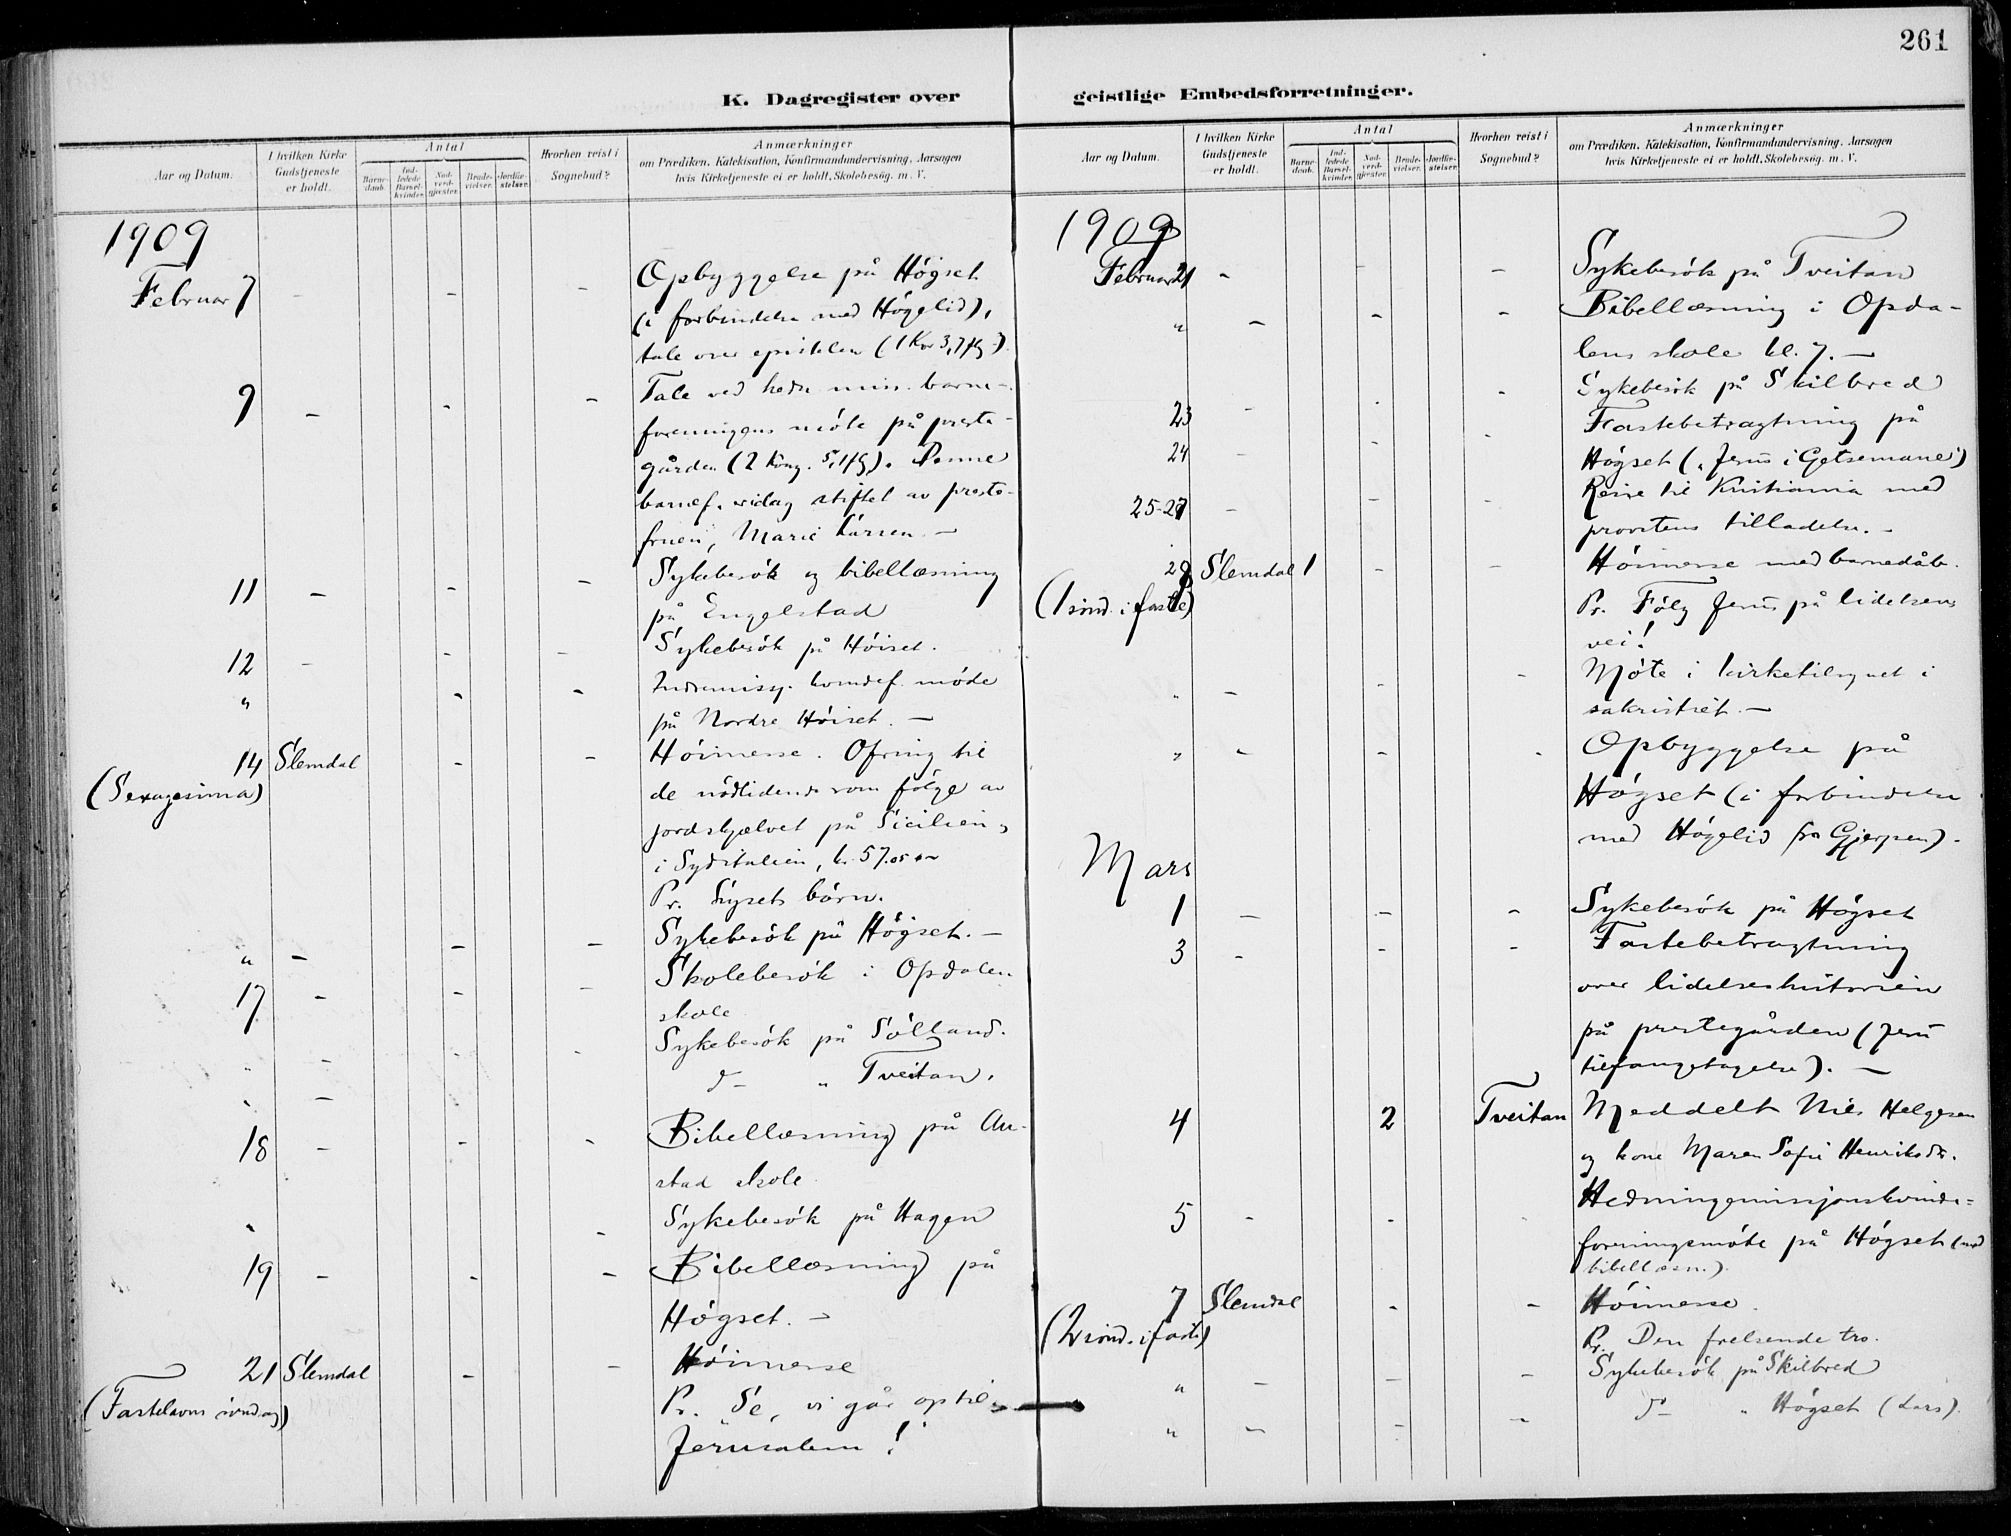 261
K. Dagregister over
geistlige Embedsforretninger.
Aar og Datum.
I hvilken Kirke Gudstjeneste er holdt.
Antal
Barnedaab.
Indledede Barselkvinder.
Nadverdgjester.
Brudevielser.
Jordfæstelser.
Hvorhen reist i Sognebud?
Anmærkninger
om Prædiken, Katekisation, Konfirmandundervisning, Aarsagen
hvis Kirketjeneste ei er holdt, Skolebesøg. m. V.
1909
Februar 7 - - - Opbyggelse på Högset
(i forbindelse med Högelid),
tale over epistelen (1 Kor 3,7 flg.).
9 - - - Tale ved hedn. miss. barne-
foreningens möte på preste-
gården (2 Kong. 5,1 flg.). Denne
barnef. er idag stiftet av preste-
fruen, Marie Larsen. -
11 - - - Sykebesök og bibellæsning
på Engelstad
12 - - - Sykebesök på Höiset.
" - - Indremissj. kvindef. möde
på Nordre Höiset. -
14 Slemdal - - Höimesse. Ofring til
(Sexagesima) de nödlidende som fölge av
jordskjælvet på Sicilien og
i Syditalien, kr. 57.05
Pr. Lysets börn.
" - - - Sykebesök på Högset. -
17 - - - Skolebesök i Opdalen
skole
" - - - Sykebesök på Sölland.
" - do " Tveitan.
18 - - - Bibellæsning på An-
stad skole.
" - Sykebesök på Hagen
19 - - - Bibellæsning på
Högset. -
21 Slemdal - - Höimesse
(Fastelavns söndag) Pr. Se, vi går op til
Jerusalem!
Aar og Datum.
I hvilken Kirke Gudstjeneste er holdt.
Antal
Barnedaab.
Indledede Barselkvinder.
Nadverdgjester.
Brudevielser.
Jordfæstelser.
Hvorhen reist i Sognebud?
Anmærkninger
om Prædiken, Katekisation, Konfirmandundervisning, Aarsagen
hvis Kirketjeneste ei er holdt, Skolebesøg. m. V.
1909
Februar 21 - - - Sykebesök på Tveitan
" - - - Bibellæsning i Opda-
lens skole kl. 7. -
23 - - - Sykebesök på Skilbred
24 - - - Fastebetragtning på
Högset ("Jesus i Getsemane")
25-27 - - - Reise til Kristiania med
provstens tilladelse. -
28 Slemdal 1 - - Höimesse med barnedåb.
(1 sönd. i faste) Pr. Følg Jesus på lidelsens
vei!
" - - - Möte i kirketilsynet i
sakristiet. -
" - - - Opbyggelse på
Högset (i forbindelse
med Högelid fra Gjerpen).
Mars
1 - - - Sykebesök på Högset
3 - - - Fastebetragtning
over lidelseshistorien
på prestegården (Jesu
tilfangetagelse). -
4 2 Tveitan Meddelt Nils Helgesen
og kone Maren Sofie Henriksdr.
5 - - - Hedningemissjonskvinde-
foreningsmöte på Högset (med
bibellæsn.).
7 Slemdal - - Höimesse.
(2 sönd. i faste) Pr. Den frelsende tro.
" - - - Sykebesök på Skilbred
" - - - do " Högset (Lars).